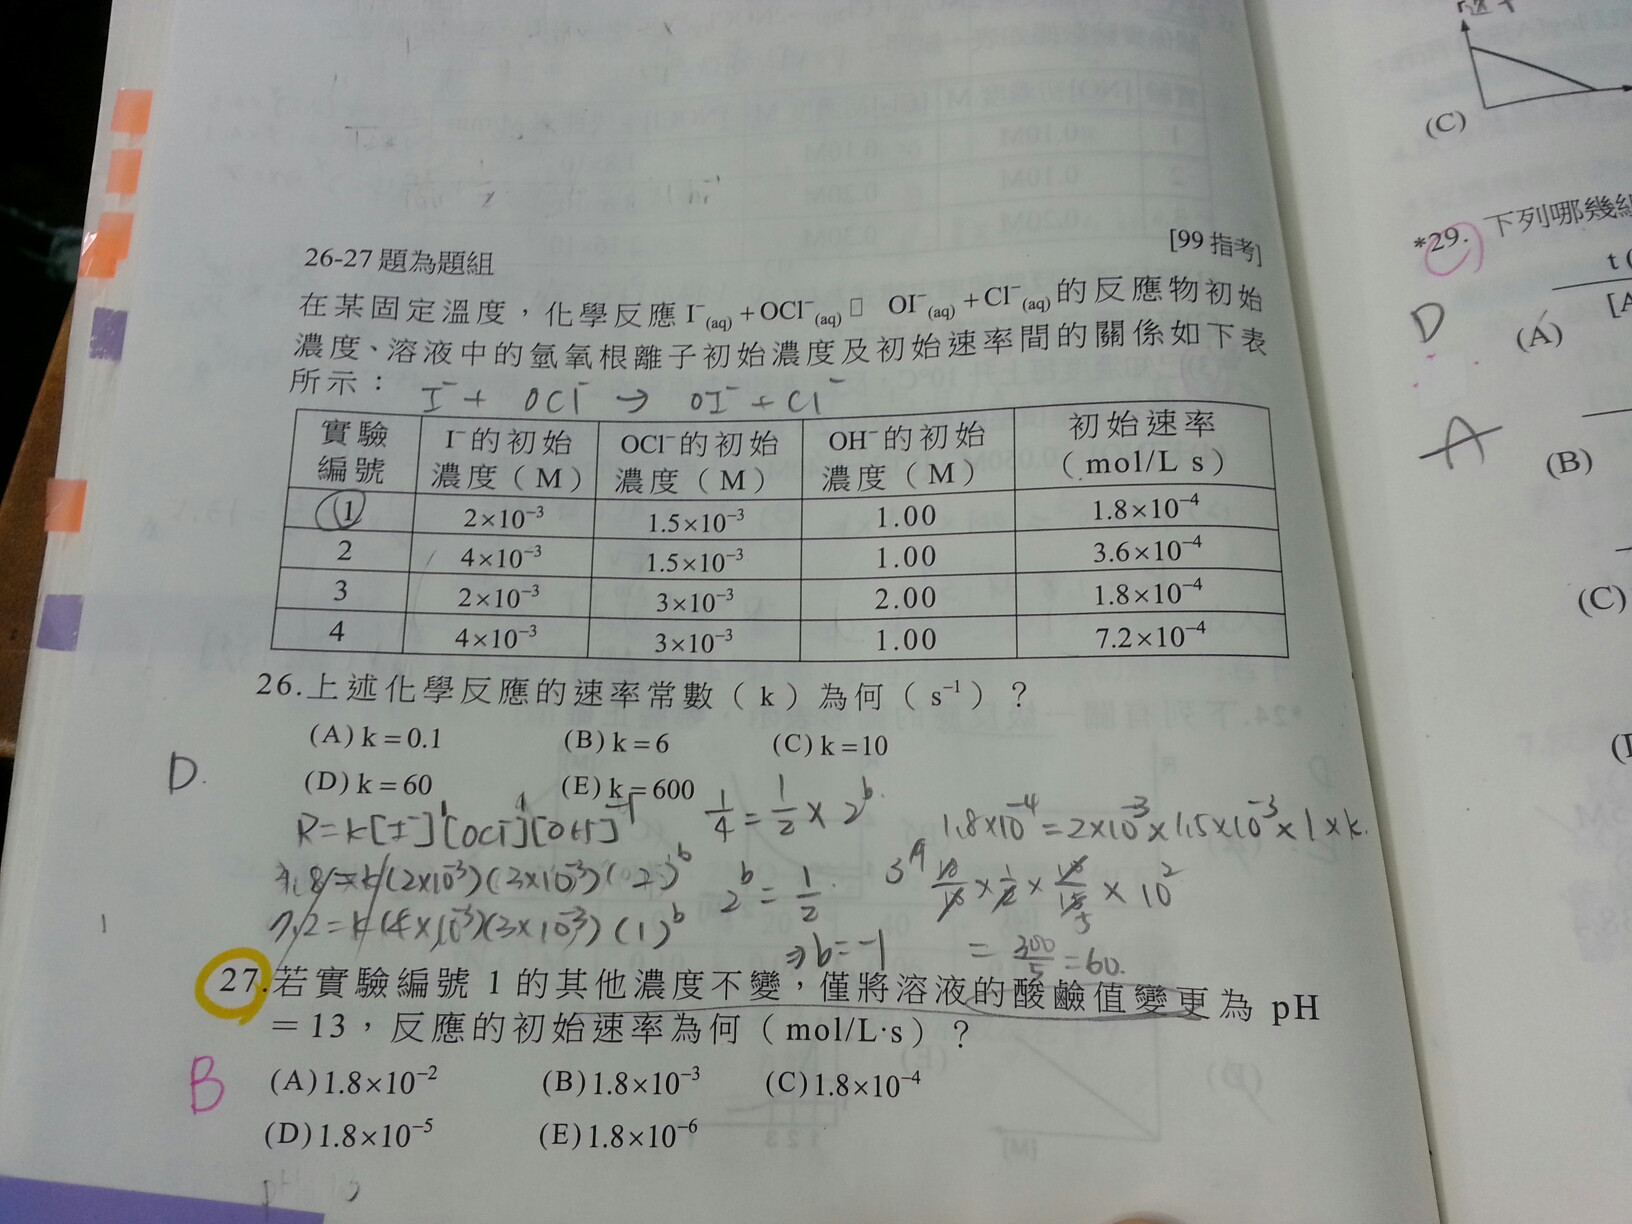 [99 指考]
26-27 題為題組
在某固定溫度，化學反應 I⁻(aq) + OCl⁻(aq) ▯ OI⁻(aq) + Cl⁻(aq) 的反應物初始
濃度、溶液中的氫氧根離子初始濃度及初始速率間的關係如下表
所示：
I⁻ + OCl⁻ → OI⁻ + Cl⁻
實驗編號 I⁻的初始濃度（M） OCl⁻的初始濃度（M） OH⁻的初始濃度（M） 初始速率（mol/L s）
1 2×10⁻³ 1.5×10⁻³ 1.00 1.8×10⁻⁴
2 4×10⁻³ 1.5×10⁻³ 1.00 3.6×10⁻⁴
3 2×10⁻³ 3×10⁻³ 2.00 1.8×10⁻⁴
4 4×10⁻³ 3×10⁻³ 1.00 7.2×10⁻⁴
26.上述化學反應的速率常數（k）為何（s⁻¹）？
(A) k = 0.1 (B) k = 6 (C) k = 10
D.
(D) k = 60 (E) k = 600
R = k[I⁻]¹[OCl⁻]¹[OH⁻]⁻¹
1/4 = 1/2 × 2ᵇ
1.8×10⁻⁴ = 2×10⁻³ × 1.5×10⁻³ × 1 × k.
(2×10⁻³)(3×10⁻³)(2)ᵇ
2ᵇ = 1/2
× 10²
7.2 = k(4×10⁻³)(3×10⁻³)(1)ᵇ
⇒ b = -1
= 300/5 = 60.
27.若實驗編號 1 的其他濃度不變，僅將溶液的酸鹼值變更為 pH
= 13，反應的初始速率為何（mol/L·s）？
B
(A) 1.8×10⁻² (B) 1.8×10⁻³ (C) 1.8×10⁻⁴
(D) 1.8×10⁻⁵ (E) 1.8×10⁻⁶
(C)
*29. 下列哪幾組
D
t (
(A)
[A
A
(B)
(C)